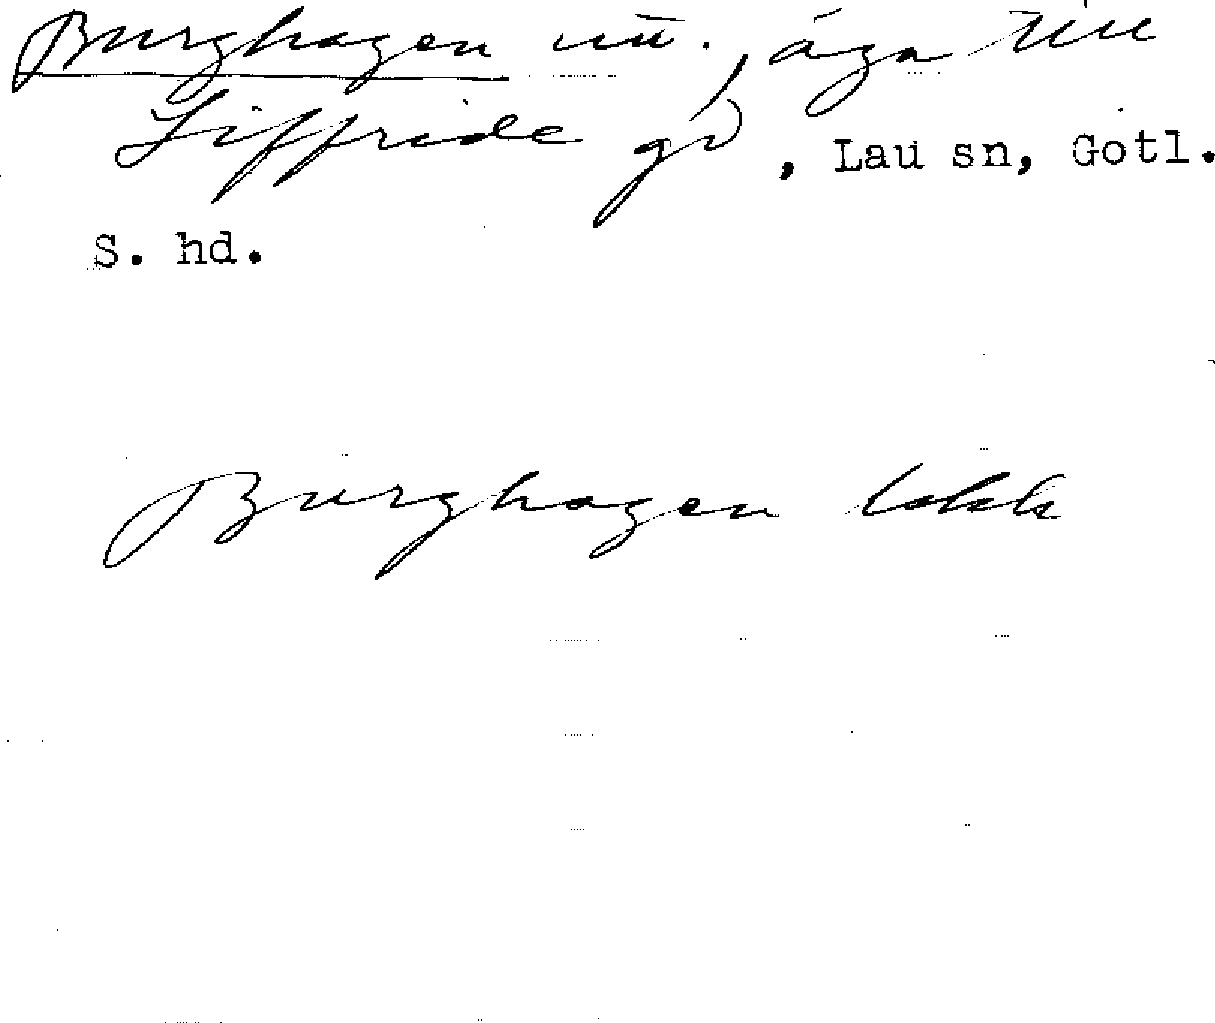 Burghagen nu., äga till
Liffride gd, Lau sn, Gotl.
S. hd.
Burghagen